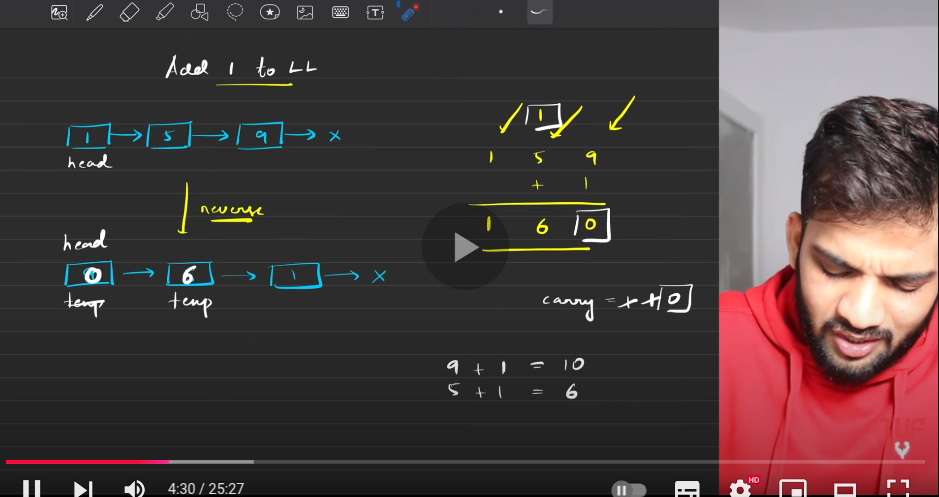 Add 1 to LL
1 → 5 → 9 → x
head
reverse
head
0 → 6 → 1 → x
temp temp
1
1 5 9
+ 1
1 6 0
carry = 0
9 + 1 = 10
5 + 1 = 6
4:30 / 25:27
HD